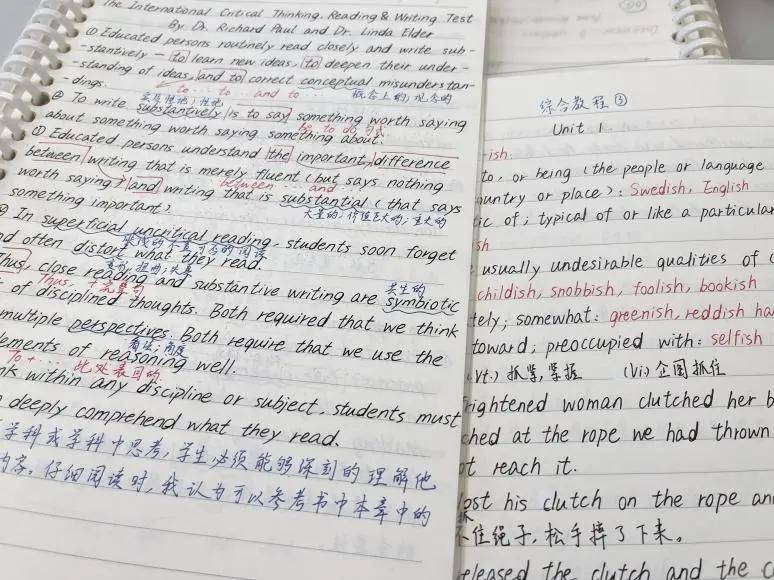 The International Critical Thinking, Reading & Writing Test
By Dr. Richard Paul and Dr. Linda Elder
① Educated persons routinely read closely and write sub-
stantively — to learn new ideas, to deepen their under-
-standing of ideas, and to correct conceptual misunderstan-
-dings.
to... to... and to...
概念上的, 观念的
② To write substantively is to say something worth saying
about something worth saying something about.
to do 句式
① Educated persons understand the important difference
between writing that is merely fluent (but says nothing
worth saying) and writing that is substantial (that says
between ... and
something important).
大量的; 价值巨大的; 重大的
In superficial uncritical reading, students soon forget
nd often distort what they read.
Thus, close reading and substantive writing are symbiotic
共生的
Thus, + 完整句
of disciplined thoughts. Both required that we think
multiple perspectives. Both require that we use the
看法; 角度
lements of reasoning well.
To + ... 此处表目的
nk within any discipline or subject, students must
deeply comprehend what they read.
学科或学科中思考, 学生必须能够深刻的理解他
内容, 仔细阅读时, 我认为可以参考书中本章中的
综合教程③
Unit 1
-ish.
to, or being (the people or language
ountry or place): Swedish, English
ic of; typical of or like a particular
sh
usually undesirable qualities of
childish, snobbish, foolish, bookish
tely; somewhat: greenish, reddish ha
toward; preoccupied with: selfish
(vt.) 抓紧, 掌握 (vi) 企图抓住
rightened woman clutched her b
ched at the rope we had thrown
ot reach it.
lost his clutch on the rope an
抓
不住绳子, 松手摔了下来。
eleased the clutch and the c